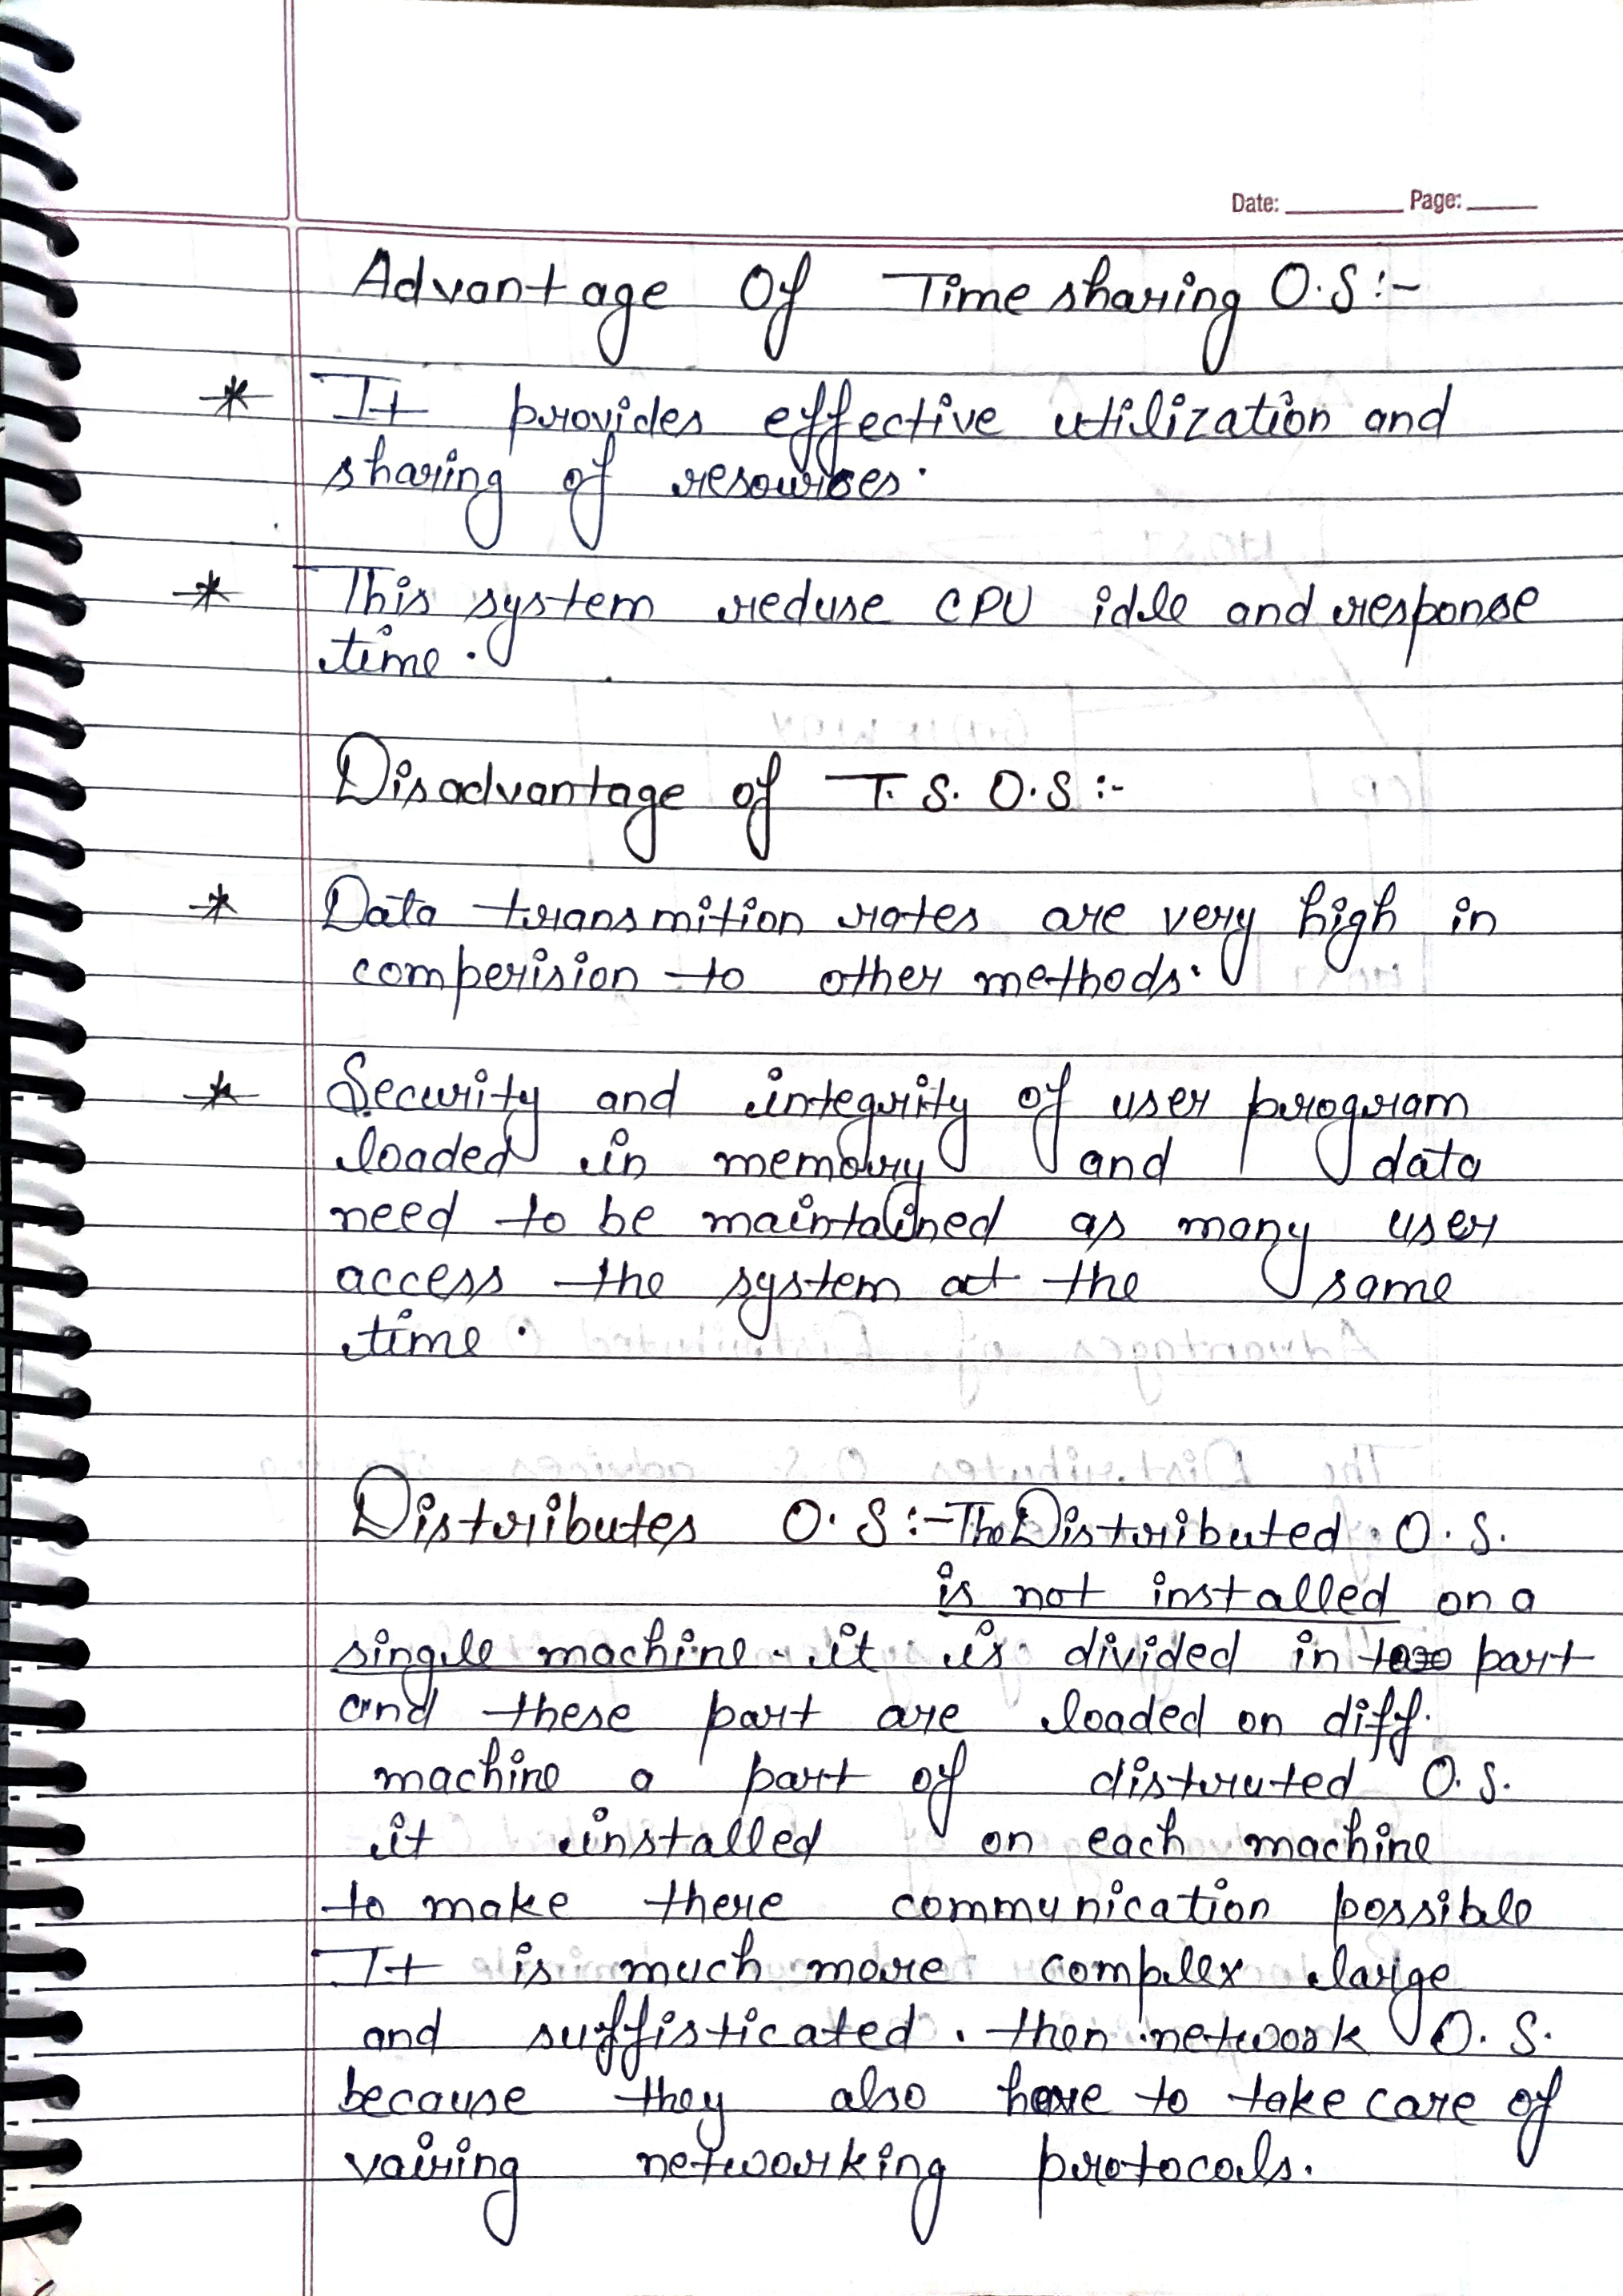 Date: Page:
Advantage Of Time sharing O.S:-
* It provides effective utilization and
sharing of resources.
* This system reduse CPU idle and response
time.
Disadvantage of T.S. O.S:-
* Data transmition rates are very high in
comperision to other methods.
* Security and integrity of user program
loaded in memory and data
need to be maintained as many user
access the system at the same
time.
Distributes O.S:- The Distributed O.S.
is not installed on a
single machine. it is divided in part
and these part are loaded on diff.
machine a part of distruted O.S.
it installed on each machine
to make there communication possible
It is much more complex large
and suffisticated. then network O.S.
because they also have to take care of
vairing networking protocals.